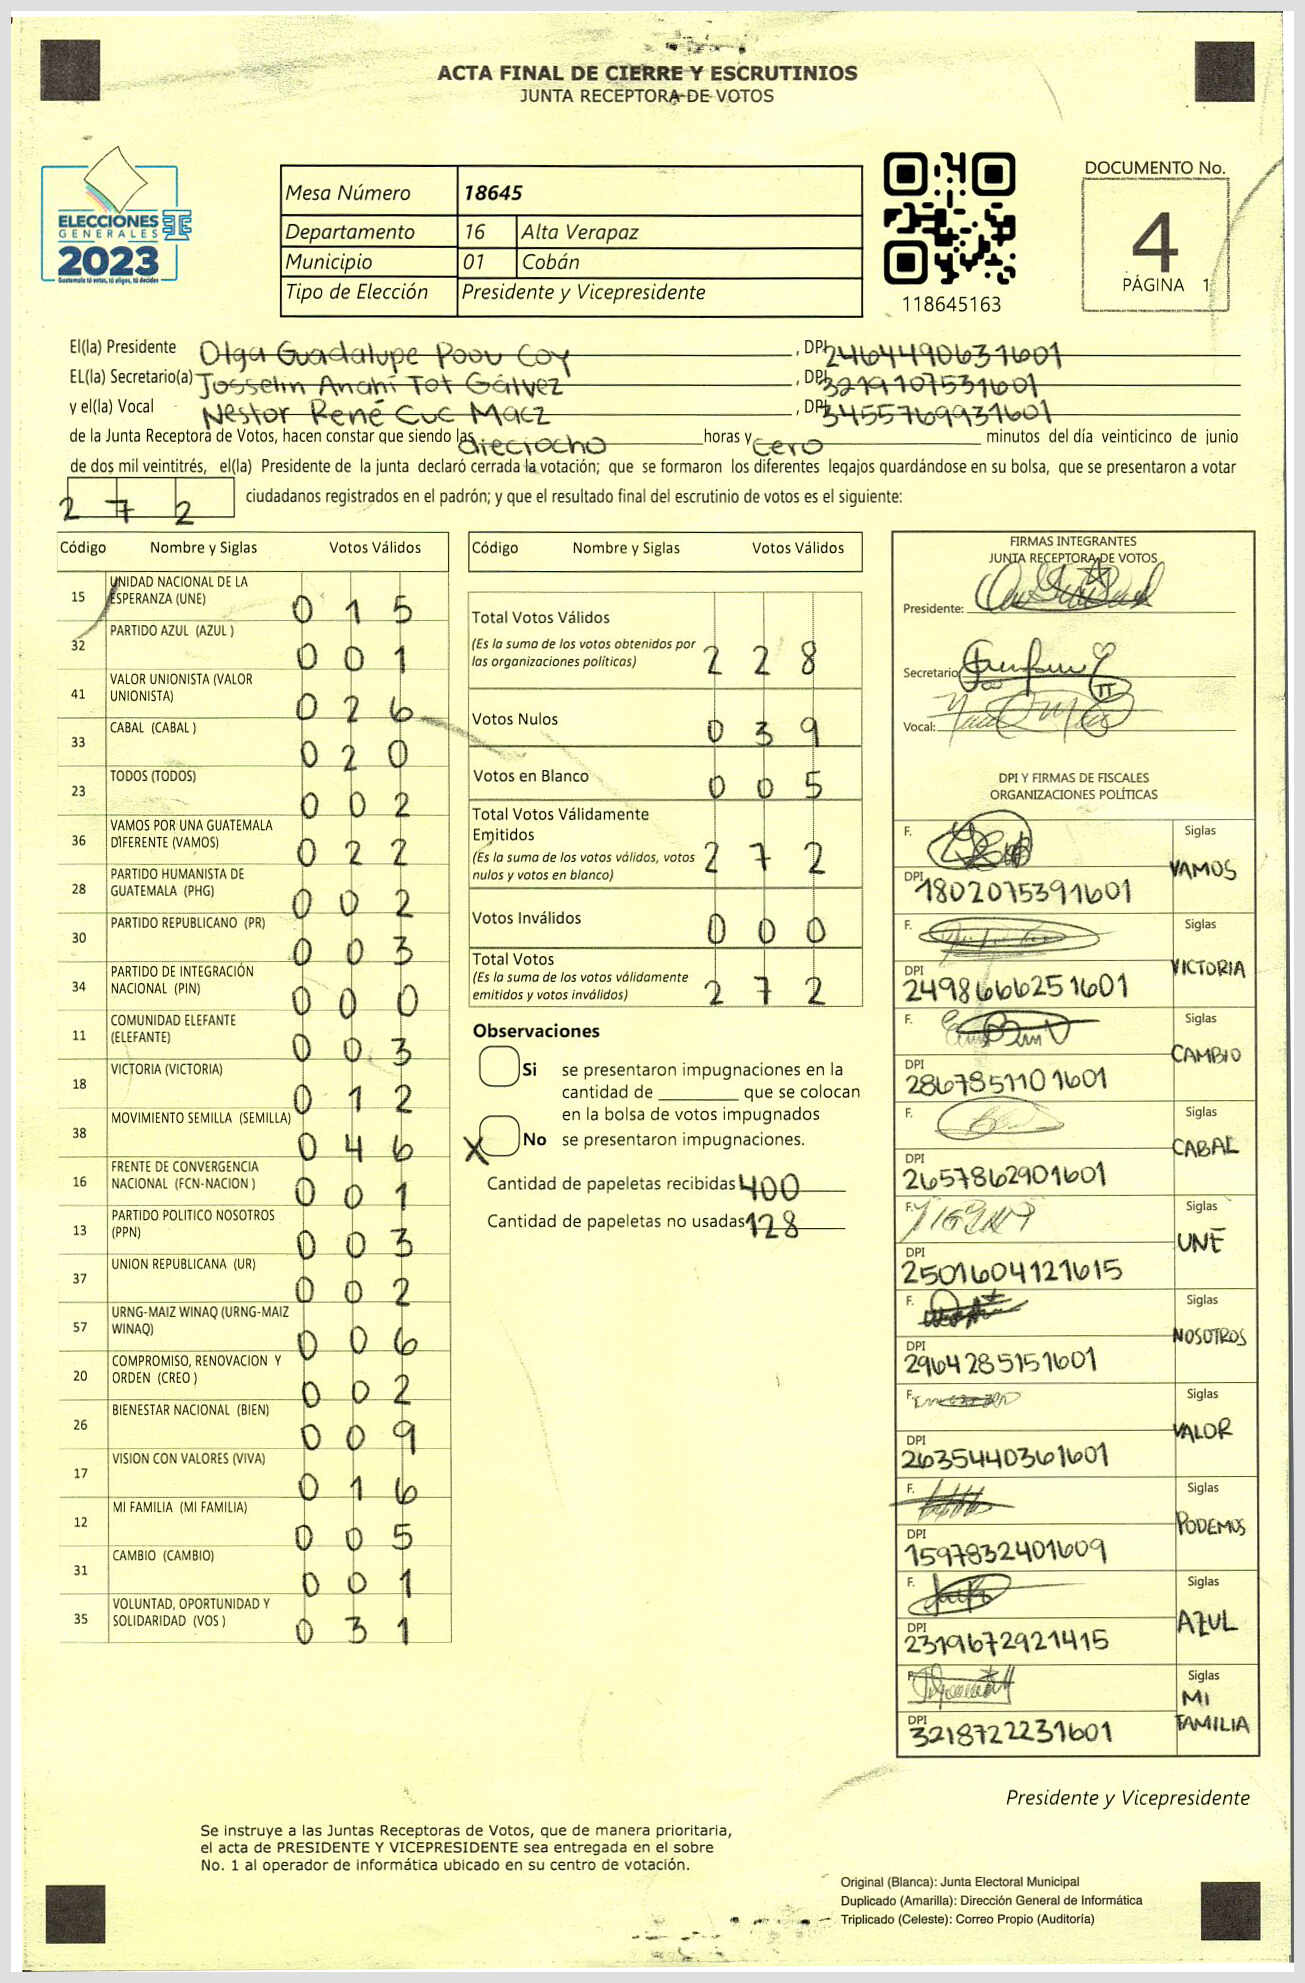 ACTA FINAL DE CIERRE Y ESCRUTINIOS
JUNTA RECEPTORA DE VOTOS
ELECCIONES
GENERALES
2023
Guatemala tú votas, tú eliges, tú decides
Mesa Número 18645
Departamento 16 Alta Verapaz
Municipio 01 Cobán
Tipo de Elección Presidente y Vicepresidente
118645163
DOCUMENTO No.
4
PÁGINA 1
El(la) Presidente Olga Guadalupe Poou Coy, DPI 2464490631601
EL(la) Secretario(a) Josselin Anahí Tot Gálvez, DPI 3219107531601
y el(la) Vocal Nestor René Cuc Macz, DPI 3455769931601
de la Junta Receptora de Votos, hacen constar que siendo las dieciocho horas y cero minutos del día veinticinco de junio
de dos mil veintitrés, el(la) Presidente de la junta declaró cerrada la votación; que se formaron los diferentes legajos guardándose en su bolsa, que se presentaron a votar
272 ciudadanos registrados en el padrón; y que el resultado final del escrutinio de votos es el siguiente:
Código Nombre y Siglas Votos Válidos
15 UNIDAD NACIONAL DE LA ESPERANZA (UNE) 015
32 PARTIDO AZUL (AZUL ) 001
41 VALOR UNIONISTA (VALOR UNIONISTA) 026
33 CABAL (CABAL ) 020
23 TODOS (TODOS) 002
36 VAMOS POR UNA GUATEMALA DIFERENTE (VAMOS) 022
28 PARTIDO HUMANISTA DE GUATEMALA (PHG) 002
30 PARTIDO REPUBLICANO (PR) 003
34 PARTIDO DE INTEGRACIÓN NACIONAL (PIN) 000
11 COMUNIDAD ELEFANTE (ELEFANTE) 003
18 VICTORIA (VICTORIA) 012
38 MOVIMIENTO SEMILLA (SEMILLA) 046
16 FRENTE DE CONVERGENCIA NACIONAL (FCN-NACION ) 001
13 PARTIDO POLITICO NOSOTROS (PPN) 003
37 UNION REPUBLICANA (UR) 002
57 URNG-MAIZ WINAQ (URNG-MAIZ WINAQ) 006
20 COMPROMISO, RENOVACION Y ORDEN (CREO ) 002
26 BIENESTAR NACIONAL (BIEN) 009
17 VISION CON VALORES (VIVA) 016
12 MI FAMILIA (MI FAMILIA) 005
31 CAMBIO (CAMBIO) 001
35 VOLUNTAD, OPORTUNIDAD Y SOLIDARIDAD (VOS ) 031
Código Nombre y Siglas Votos Válidos
Total Votos Válidos
(Es la suma de los votos obtenidos por
las organizaciones políticas) 228
Votos Nulos 039
Votos en Blanco 005
Total Votos Válidamente
Emitidos
(Es la suma de los votos válidos, votos
nulos y votos en blanco) 272
Votos Inválidos 000
Total Votos
(Es la suma de los votos válidamente
emitidos y votos inválidos) 272
Observaciones
Si se presentaron impugnaciones en la
cantidad de ________ que se colocan
en la bolsa de votos impugnados
X No se presentaron impugnaciones.
Cantidad de papeletas recibidas 400
Cantidad de papeletas no usadas 128
FIRMAS INTEGRANTES
JUNTA RECEPTORA DE VOTOS
Presidente:
Secretario
Vocal:
DPI Y FIRMAS DE FISCALES
ORGANIZACIONES POLÍTICAS
F. Siglas VAMOS
DPI 1802075391601
F. Siglas VICTORIA
DPI 2498666251601
F. Siglas CAMBIO
DPI 2867851101601
F. Siglas CABAL
DPI 2657862901601
F. Siglas UNE
DPI 2501604121615
F. Siglas NOSOTROS
DPI 2964285151601
F. Siglas VALOR
DPI 2635440361601
F. Siglas PODEMOS
DPI 1597832401609
F. Siglas AZUL
DPI 2319672921415
F. Siglas MI FAMILIA
DPI 3218722231601
Presidente y Vicepresidente
Se instruye a las Juntas Receptoras de Votos, que de manera prioritaria,
el acta de PRESIDENTE Y VICEPRESIDENTE sea entregada en el sobre
No. 1 al operador de informática ubicado en su centro de votación.
Original (Blanca): Junta Electoral Municipal
Duplicado (Amarilla): Dirección General de Informática
Triplicado (Celeste): Correo Propio (Auditoría)